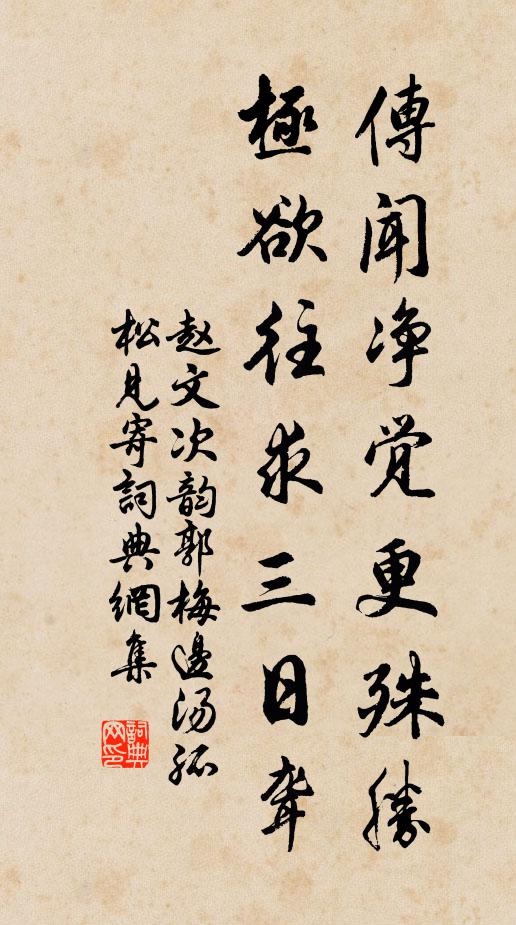 傳聞净觉更殊勝
極欲往求三日聾
赵文次韵郭梅邊汤孤
松見寄詞典網集
詞典网印